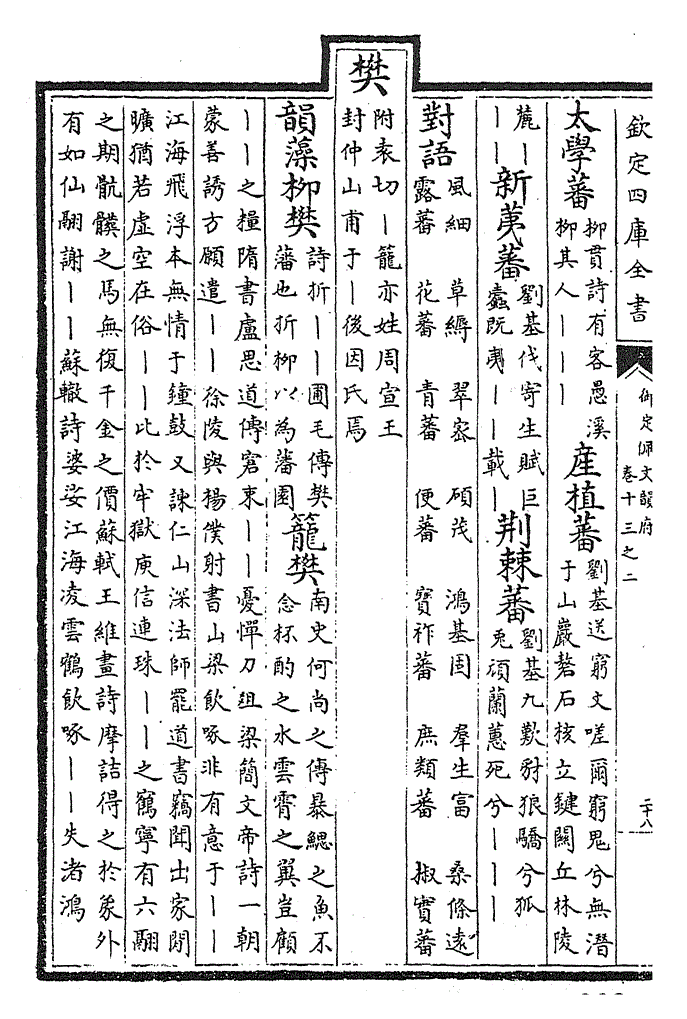 欽定四庫全書
御定佩文韻府
卷十三之二
二十八
太學蕃
柳貫詩有客愚溪
柳其人｜｜｜
産植蕃
劉基送窮文嗟爾窮鬼兮無潛
于山巖嶅石核立鍵闗丘林陵
麓｜
｜｜
新荑蕃
劉基伐寄生賦巨
蠹既夷｜｜載｜
荆棘蕃
劉基九歎豺狼驕兮狐
兎碩蘭蕙死兮｜｜｜
對語
風細 草縟 翠密 碩茂 鴻基固 羣生富 桑條遠
露蕃 花蕃 青蕃 便蕃 寶祚蕃 庶類蕃 椒實蕃
樊
附袁切｜籠亦姓周宣王
封仲山甫于｜後因氏焉
韻藻柳樊
詩折｜｜圃毛傳樊
藩也折柳以為藩園
籠樊
南史何尚之傳暴鰓之魚不
念杯酌之水雲霄之翼豈顧
｜｜之糧隋書盧思道傳窘束｜｜憂憚刀俎梁簡文帝詩一朝
蒙善誘方願遣｜｜徐陵與楊僕射書山梁飲啄非有意于｜｜
江海飛浮本無情于鐘鼓又諫仁山深法師罷道書竊聞出家閒
曠猶若虛空在俗｜｜比於牢獄庾信連珠｜｜之鶴寧有六翮
之期骯髒之馬無復千金之價蘇軾王維畫詩摩詰得之於象外
有如仙翮謝｜｜蘇轍詩婆娑江海凌雲鶴飲啄｜｜失者鴻